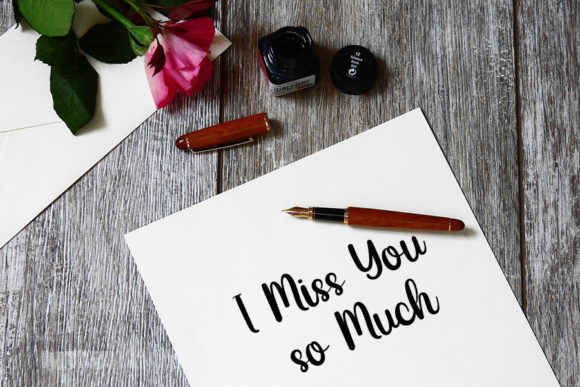 I Miss You
so Much